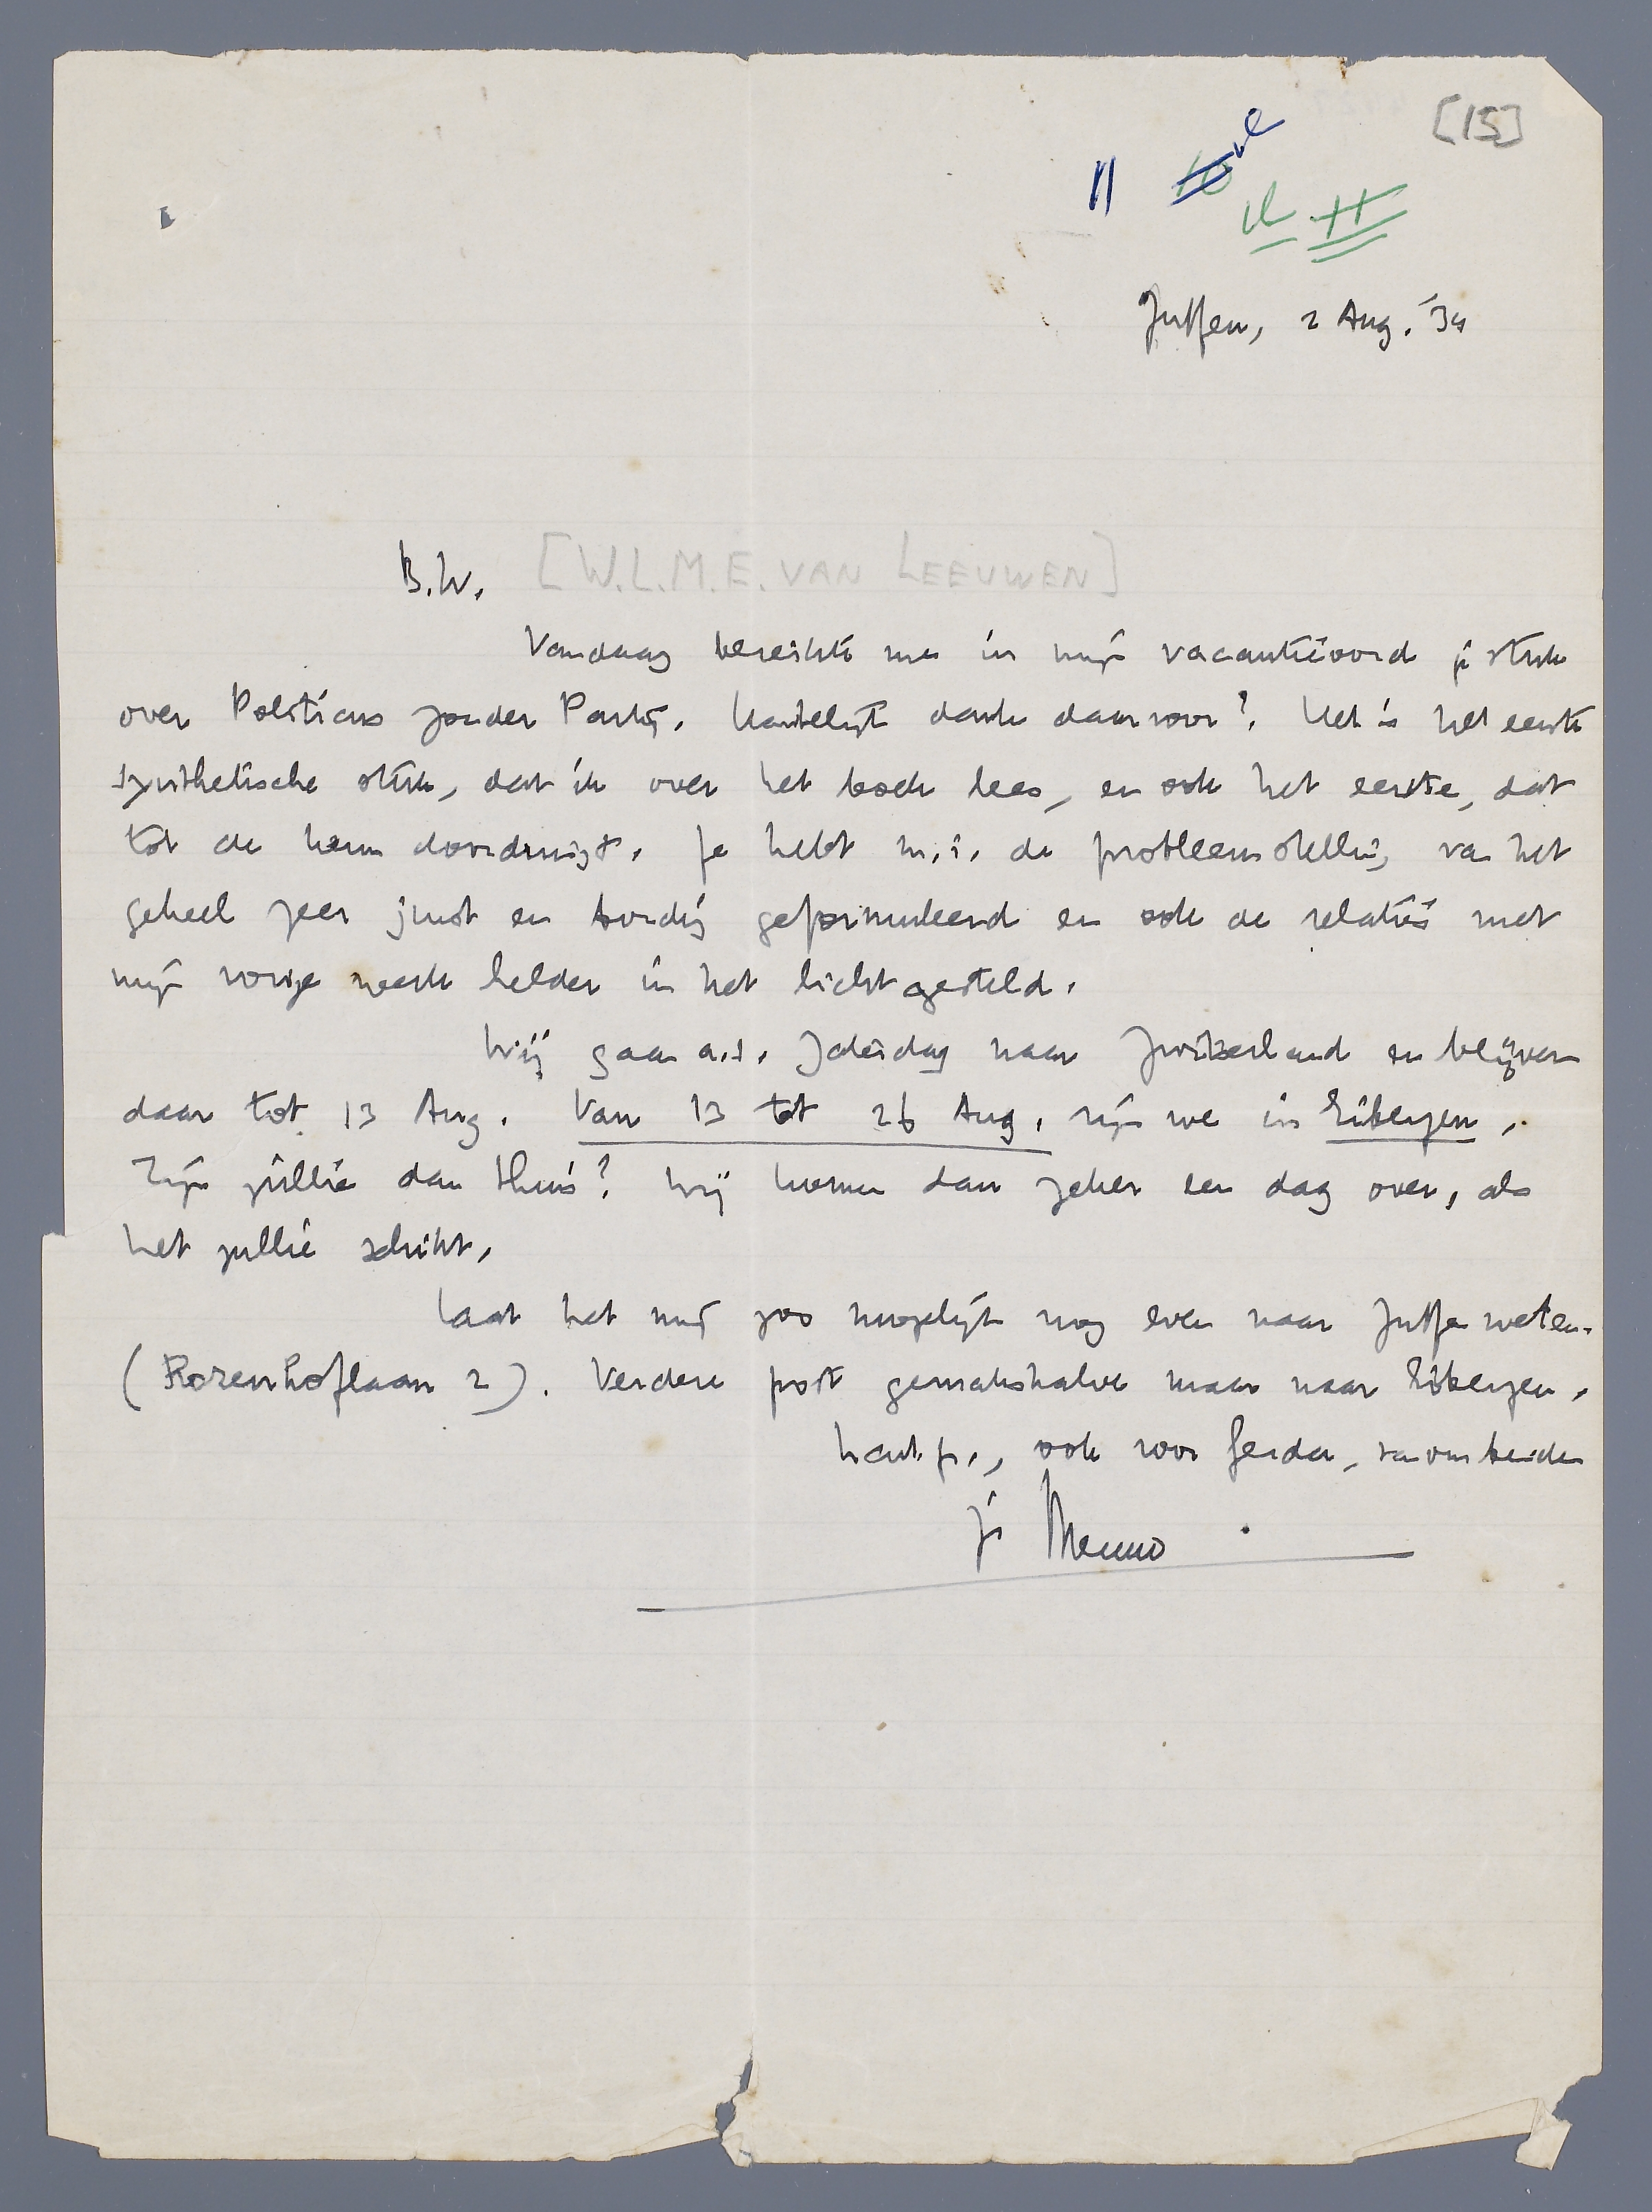 [15]
11
Zutfen, 2 Aug. '34
B.W. [W.L.M.E. VAN LEEUWEN]
Vandaag bereikte me in mijn vacantieoord je stuk
over Politicus zonder Partij. Hartelijk dank daarvoor! Het is het eerste
synthetische stuk, dat ik over het boek lees, en ook het eerste, dat
tot de kern doordringt. Je hebt m.i. de probleemstelling van het
geheel zeer juist en bondig geformuleerd en ook de relaties met
mijn vorige werk helder in het licht gesteld.
Wij gaan a.s. Zaterdag naar Zwitserland en blijven
daar tot 13 Aug. Van 13 tot 26 Aug. zijn we in Eibergen.
Zijn jullie dan thuis? Wij komen dan zeker een dag over, als
het jullie schikt.
Laat het mij zoo mogelijk nog even naar Zutfen weten.
(Rozenhoflaan 2). Verdere post gemakshalve maar naar Eibergen.
hart. gr., ook voor Gerda, van ons beiden
je Menno